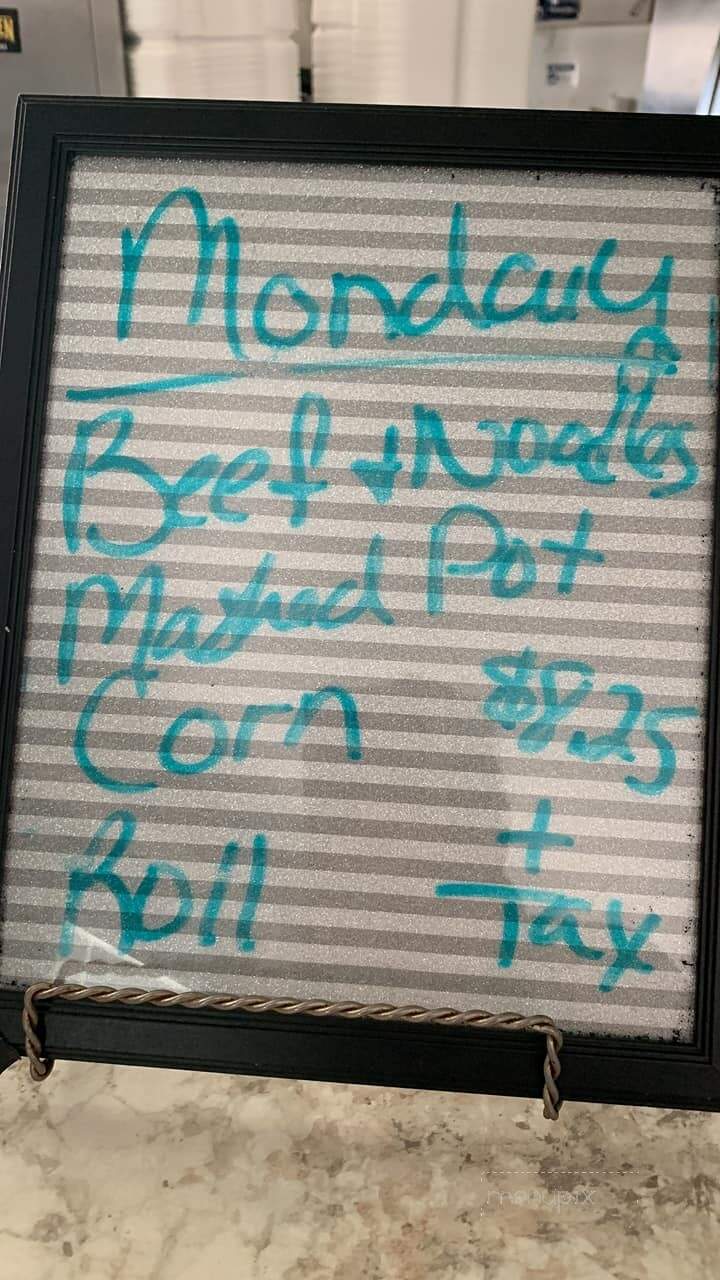 Monday
Beef + Noodles
Mashed Pot
Corn $8.25
+
Roll Tax
menupix